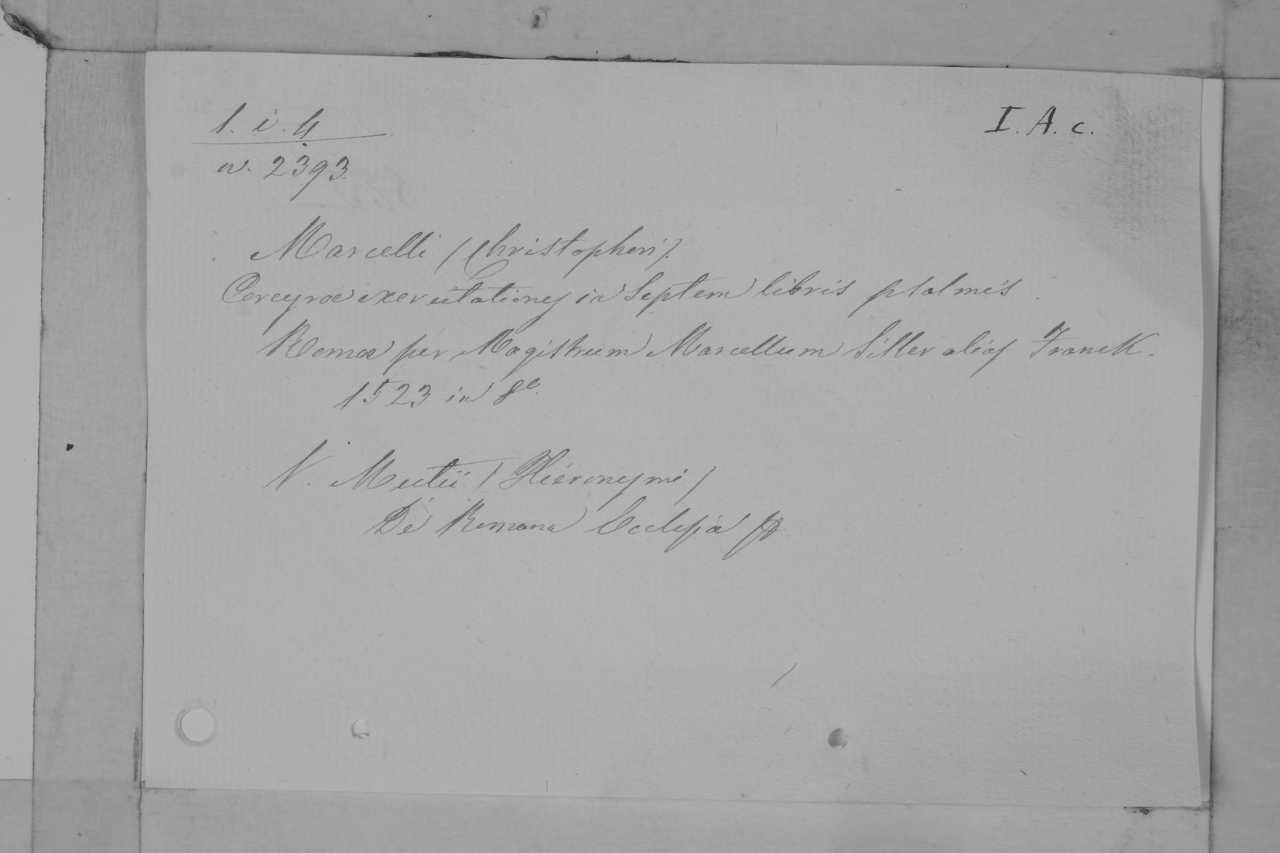 1. i. 4
I. A. c.
a. 2393
Marcelli (Christophori).
Corcyrae exercitationes in Septem libris psalmis.
Romae per Magistrum Marcellum Siller alias Franck.
1523 in 8°.
N. Mutii (Hieronymi)
De Romana Ecclesia